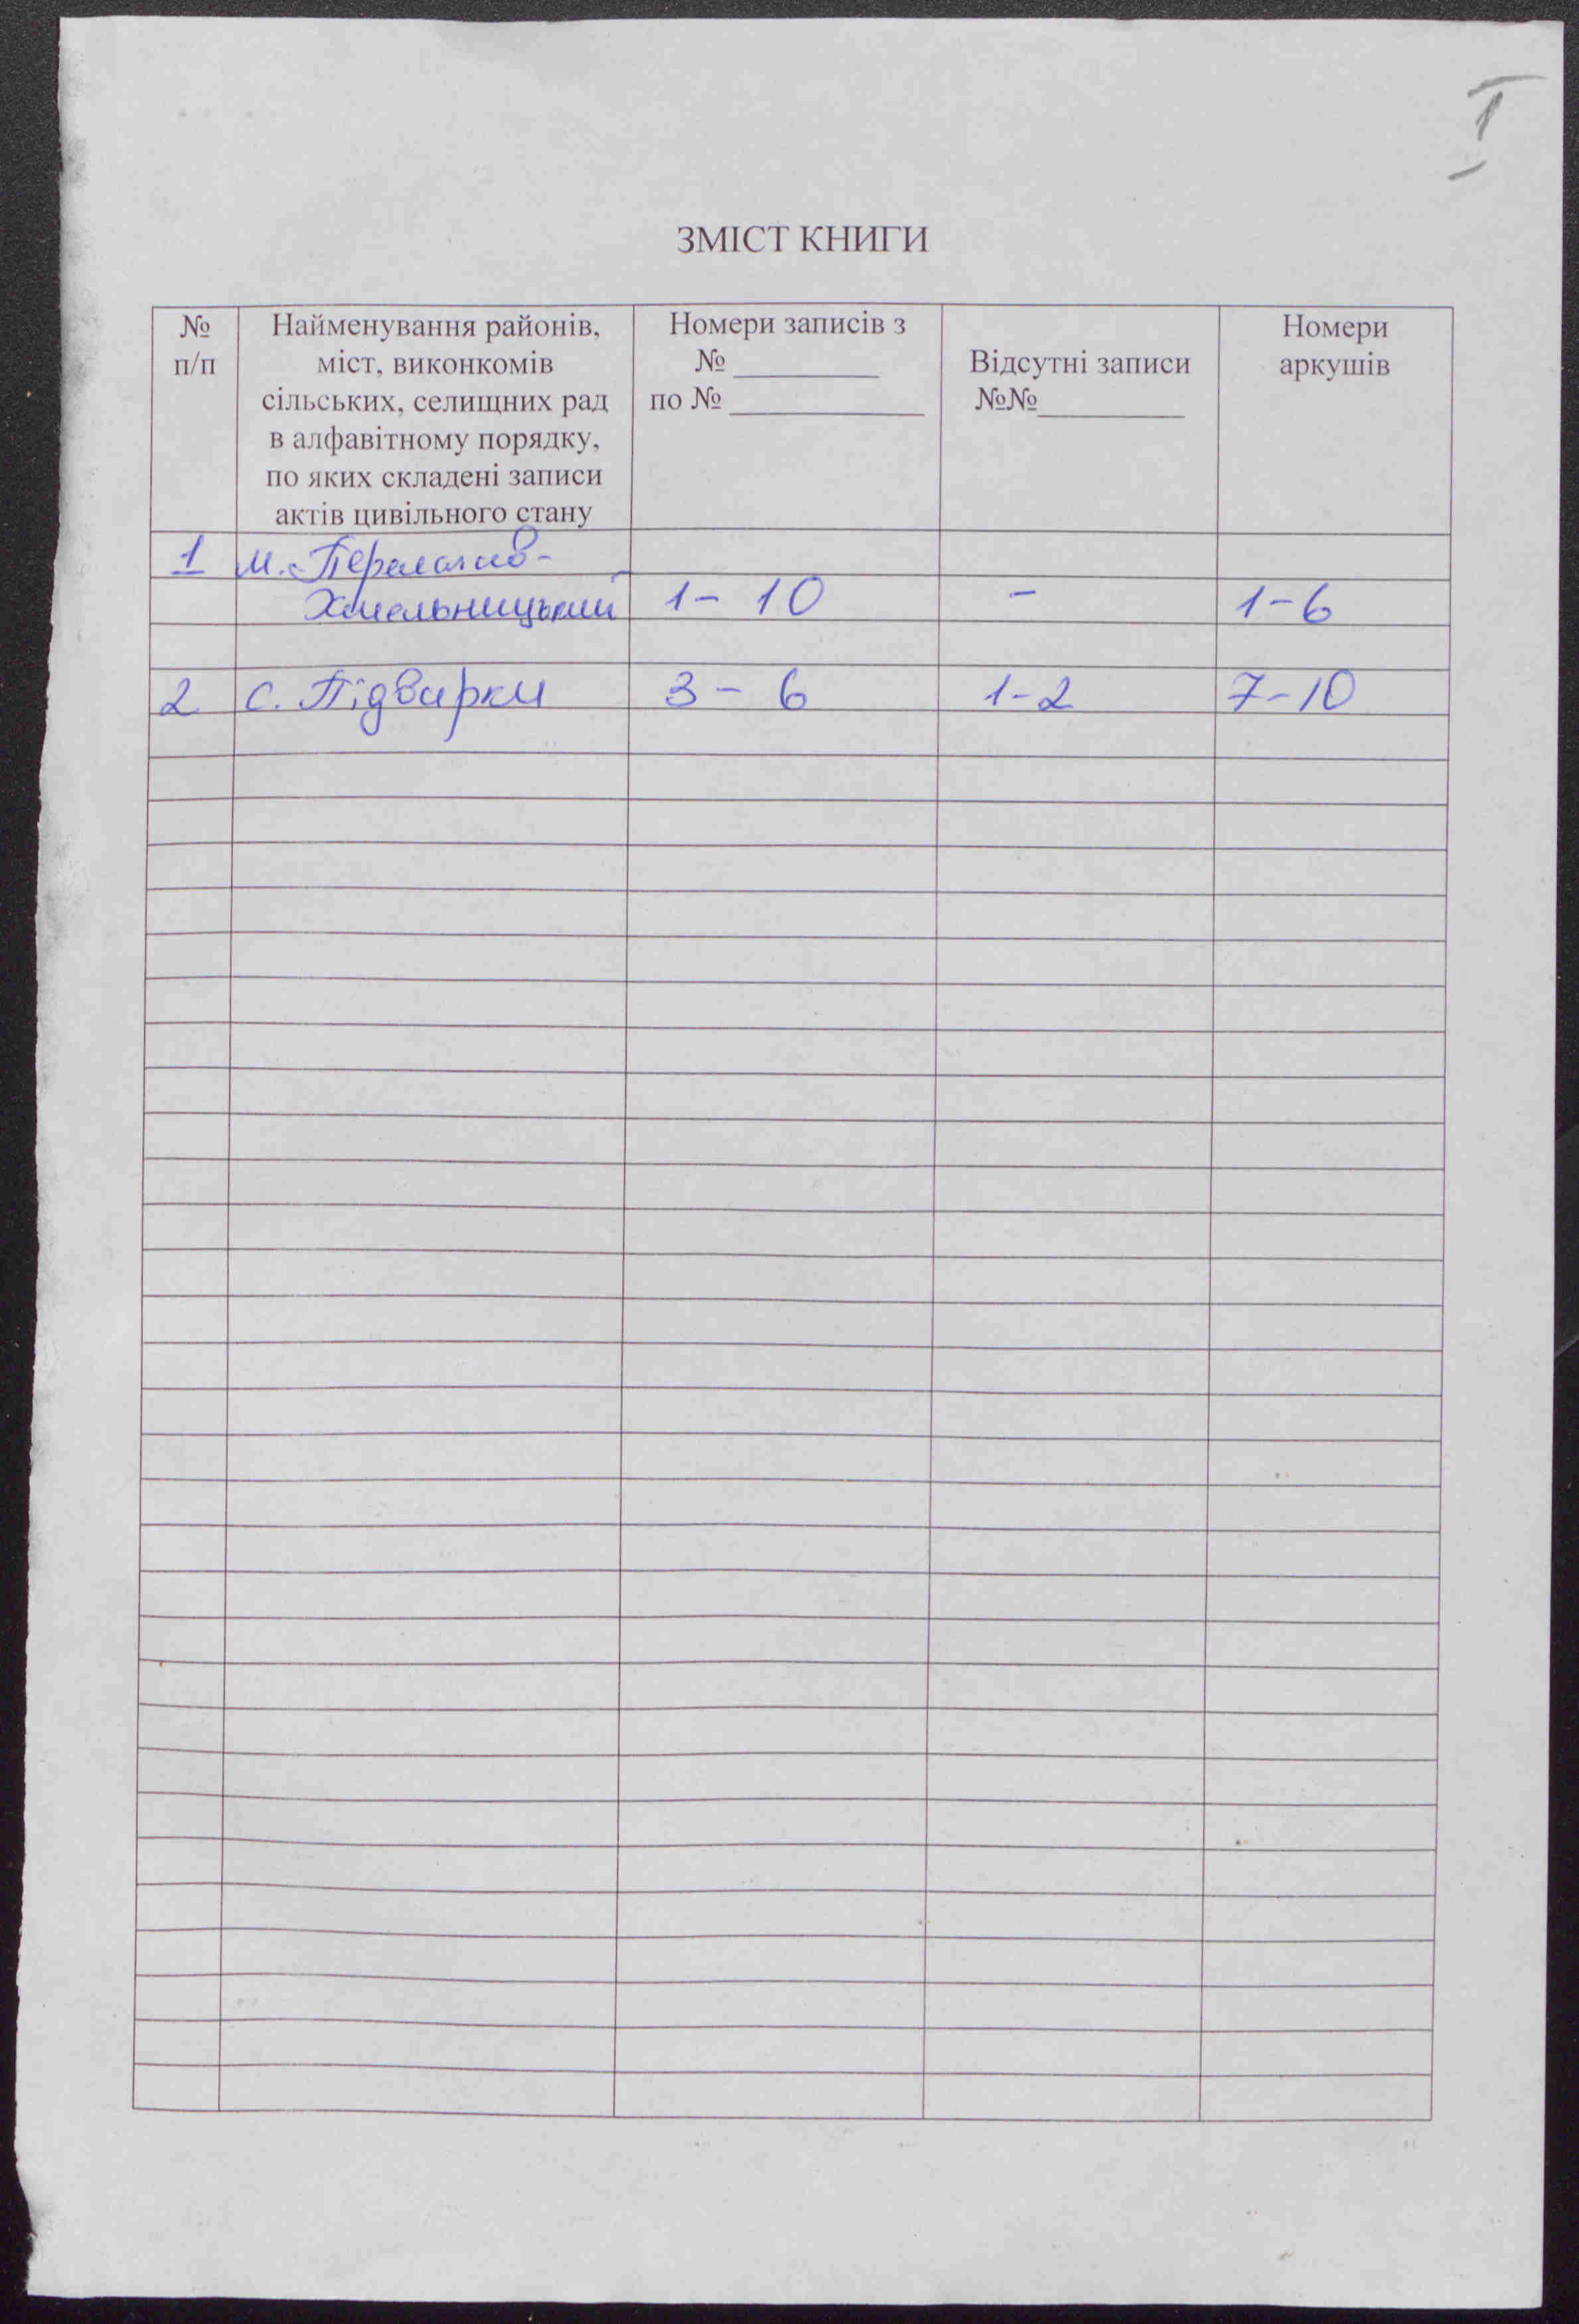 I
ЗМІСТ КНИГИ
№ п/п
Найменування районів,
міст, виконкомів
сільських, селищних рад
в алфавітному порядку,
по яких складені записи
актів цивільного стану
Номери записів з
№ __________
по № _____________
Відсутні записи
№№__________
Номери
аркушів
1 м. Переяслав-
Хмельницький 1- 10 - 1-6
2 с. Підварки 3 - 6 1-2 7-10